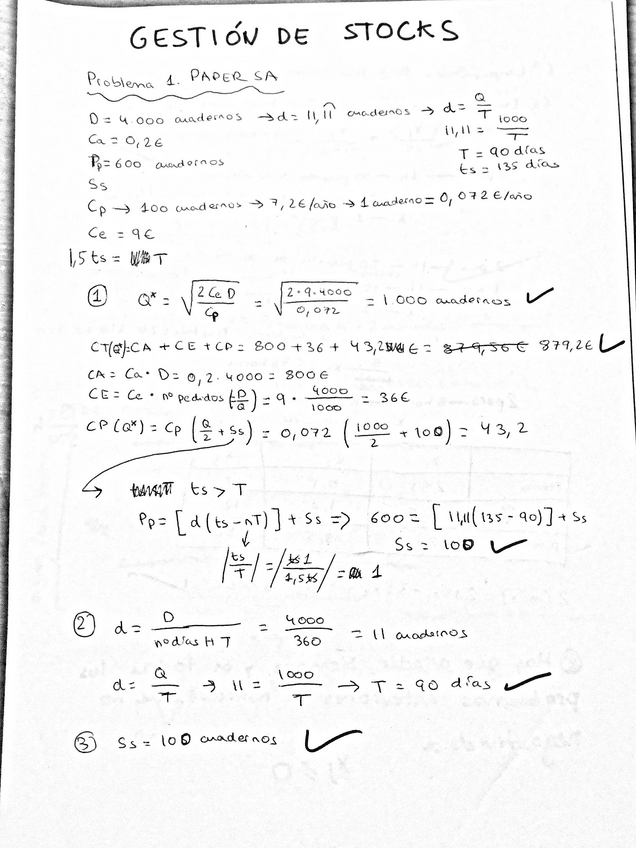 GESTIÓN DE STOCKS
Problema 1. PAPER SA
D = 4.000 cuadernos → d = 11,11 cuadernos → d = Q/T
Ca = 0,2€
11,11 = 1000/T
Pp = 600 cuadernos
T = 90 días
ts = 135 días
Ss
Cp → 100 cuadernos → 7,2€/año → 1 cuaderno = 0,072 €/año
Ce = 9€
1,5 ts = T
① Q* = √(2 Ce D / Cp) = √(2·9·4000 / 0,072) = 1.000 cuadernos ✓
CT(Q*) = CA + CE + CP = 800 + 36 + 43,2 € = 879,56€ 879,2€ ✓
CA = Ca · D = 0,2 · 4000 = 800€
CE = Ce · nº pedidos (D/Q) = 9 · 4000/1000 = 36€
CP (Q*) = Cp (Q/2 + Ss) = 0,072 (1000/2 + 100) = 43,2
→ ts > T
Pp = [d (ts - nT)] + Ss => 600 = [11,11(135 - 90)] + Ss
Ss = 100 ✓
|ts/T| = |ts 1/1,5 ts| = 1
② d = D / nº días HT = 4000/360 = 11 cuadernos
d = Q/T → 11 = 1000/T → T = 90 días ✓
③ Ss = 100 cuadernos ✓